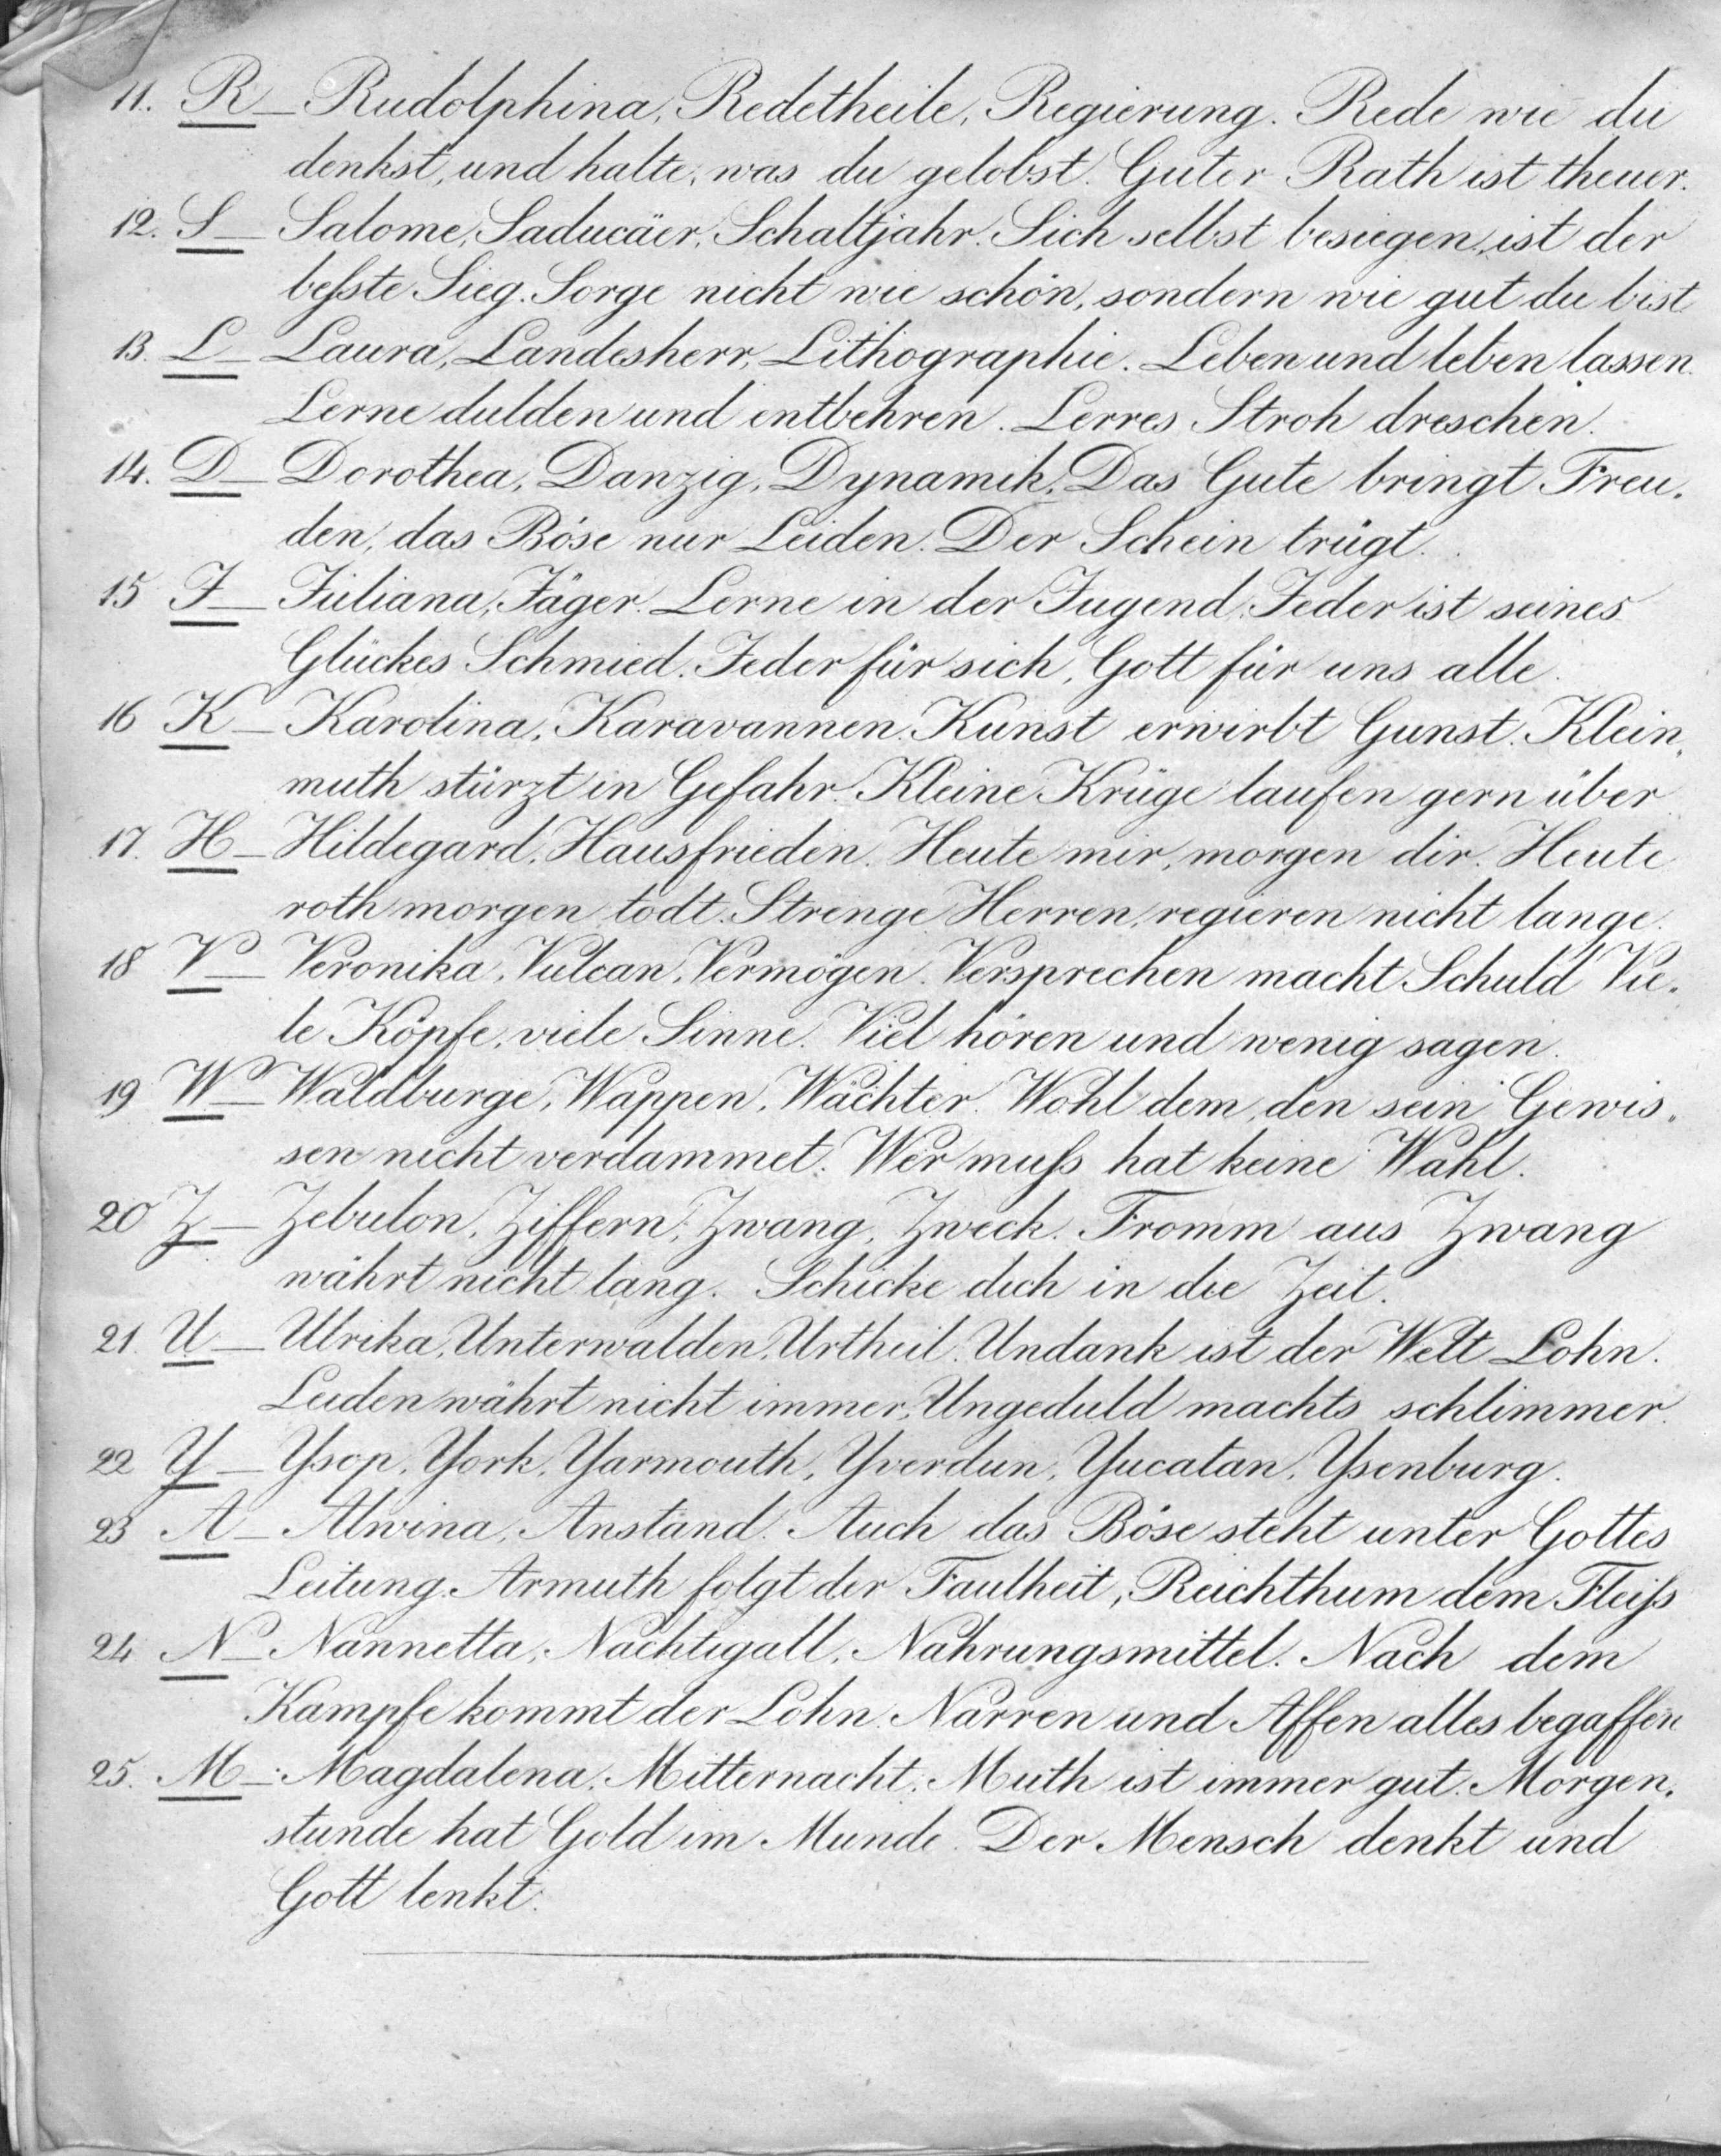 11. R — Rudolphina, Redetheile, Regierung. Rede wie du
denkst, und halte, was du gelobst. Guter Rath ist theuer.
12. S — Salome, Saducäer, Schaltjahr. Sich selbst besiegen, ist der
beßte Sieg. Sorge nicht wie schön, sondern wie gut du bist
13. L — Laura, Landesherr, Lithographie. Leben und leben lassen.
Lerne dulden und entbehren. Lerres Stroh dreschen.
14. D — Dorothea, Danzig, Dynamik. Das Gute bringt Freu-
den, das Böse nur Leiden. Der Schein trügt.
15 J — Juliana, Jäger. Lerne in der Jugend. Jeder ist seines
Glückes Schmied. Jeder für sich, Gott für uns alle.
16 K — Karolina, Karavannen. Kunst erwirbt Gunst. Klein-
muth stürzt in Gefahr. Kleine Krüge laufen gern über.
17. H — Hildegard, Hausfrieden. Heute mir, morgen dir. Heute
roth morgen todt. Strenge Herren, regieren nicht lange.
18 V — Veronika, Vulcan, Vermögen. Versprechen macht Schuld Vie-
le Köpfe, viele Sinne. Viel hören und wenig sagen.
19 W — Waldburge, Wappen, Wächter. Wohl dem, den sein Gewis-
sen nicht verdammet. Wer muß hat keine Wahl.
20 Z — Zebulon, Ziffern, Zwang, Zweck. Fromm aus Zwang
währt nicht lang. Schicke dich in die Zeit.
21. U — Ulrika, Unterwalden, Urtheil. Undank ist der Welt Lohn.
Leiden währt nicht immer, Ungeduld machts schlimmer.
22 Y — Ysop, York, Yarmouth, Yverdun, Yucatan, Ysenburg.
23 A — Alwina, Anstand. Auch das Böse steht unter Gottes
Leitung. Armuth folgt der Faulheit, Reichthum dem Fleiß
24 N — Nannetta, Nachtigall, Nahrungsmittel. Nach dem
Kampfe kommt der Lohn. Narren und Affen alles begaffen
25. M — Magdalena, Mitternacht. Muth ist immer gut. Morgen-
stunde hat Gold im Munde. Der Mensch denkt und
Gott lenkt.